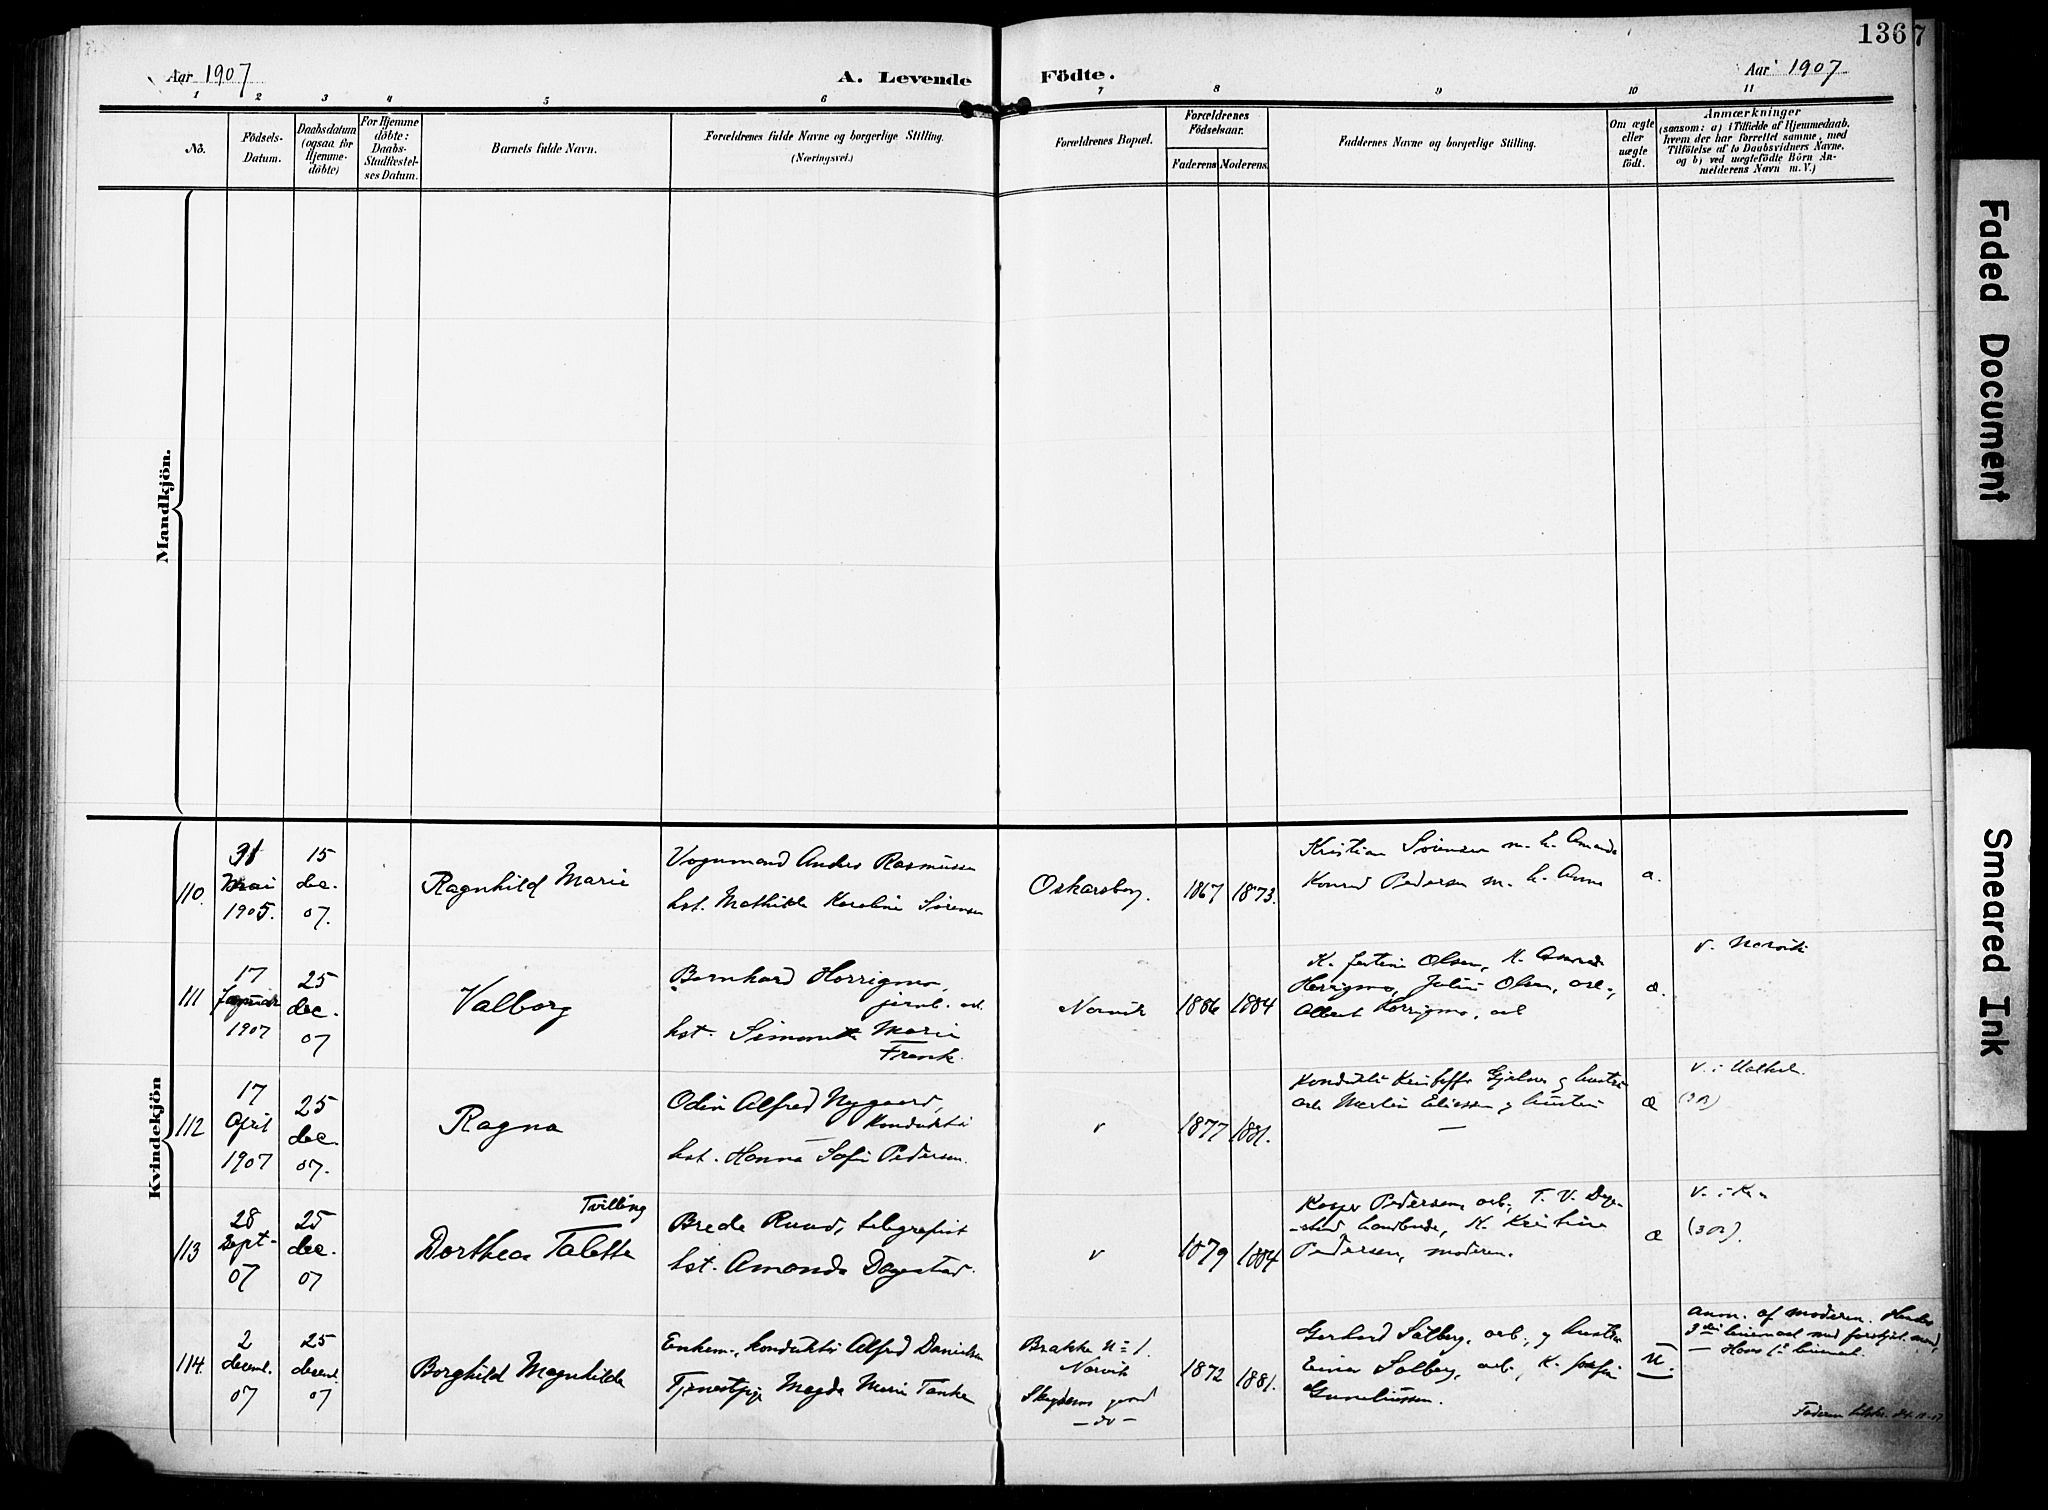 1367
Aar 1907
A. Levende Födte.
Aar 1907
1 2 3 4 5 6 7 8 9 10 11
No.
Födsels-
Datum.
Daabsdatum
(ogsaa for
Hjemme-
döbte)
For Hjemme
döbte:
Daabs-
Stadfæstel-
ses Datum.
Barnets fulde Navn.
Forældrenes fulde Navne og borgerlige Stilling.
(Næringsvei.)
Forældrenes Bopæl.
Forældrenes
Födselsaar.
Faderens Moderens
Faddernes Navne og borgerlige Stilling.
Om ægte
eller
uægte
födt.
Anmærkninger
(saasom: a) i Tilfælde af Hjemmedaab,
hvem der har forrettet samme, med
Tilföielse af to Daabsvidners Navne,
og b) ved uægtefödte Börn An-
melderens Navn m. V.)
Mandkjön.
Kvindekjön
110.
31
Mai
1905.
15
dec.
07.
Ragnhild Marie
Vognmand Anders Rasmussen
hst. Mathilde Karoline Sörensen
Oskarsborg.
1867 1873.
Kristian Sörensen m. h. Amanda
Konrad Pedersen m. h. Anna
æ.
111
17
Januar
1907
25
dec.
07
Valborg
Bernhard Horrigmo,
jernb. arb.
hst. Simonette Marie
Frank.
Narvik
1886 1884
K. Olsen, K.
Horrigmo, Julius Olsen, arb.,
Albert Horrigmo, arb
æ.
v. Narvik
112
17
April
1907
25
dec.
07.
Ragna
Odin Alfred Nygaard,
Konduktör
hst. Hanna Sofie Pedersen.
v
1877 1881.
Konduktör Kristoffer og hustru
arb. Martin Eliassen og hustru
æ
v. i
113
28
Sept-
07
25
dec.
07
Tvilling
Dorthea Talette
Brede Ruud, telegrafist
hst. Amanda Dagestad.
v
1879 1884
Kasper Pedersen, arb., T. V. Dage-
-stad, K. Kristine
Pedersen, moderen.
æ
v. i
114.
2
decemb.
07
25
decemb.
07
Borghild Magnhilde
Enkem., konduktör Alfred Danielsen
Tjenestpige Magda Marie Tanke
Brakke N= 1.
Narvik
gaard
— do —
1872 1881.
Gerhard Solberg, arb., og hustru
Einar Solberg, arb., K. Josefine
U.
anm. af moderen. Hendes
3die med forskjel. mænd,
— Hans 1ste
Faderen
Faded Document
Smeared Ink